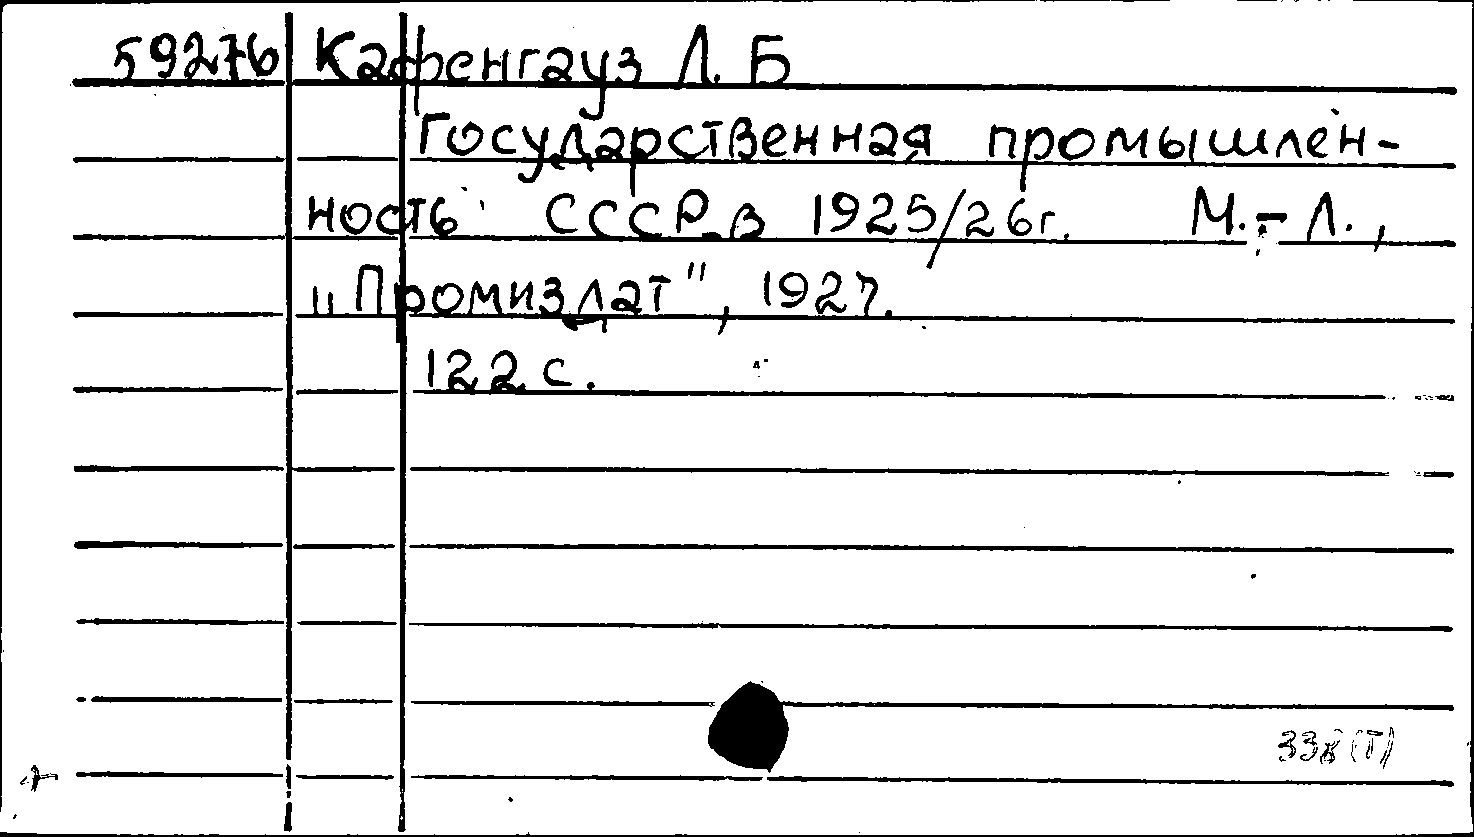 59276 Кафенгауз Л. Б
Государственная промышлен-
ность СССР в 1925/26г. М.-Л.,
„Промиздат", 1927.
122 с.
338(Т)